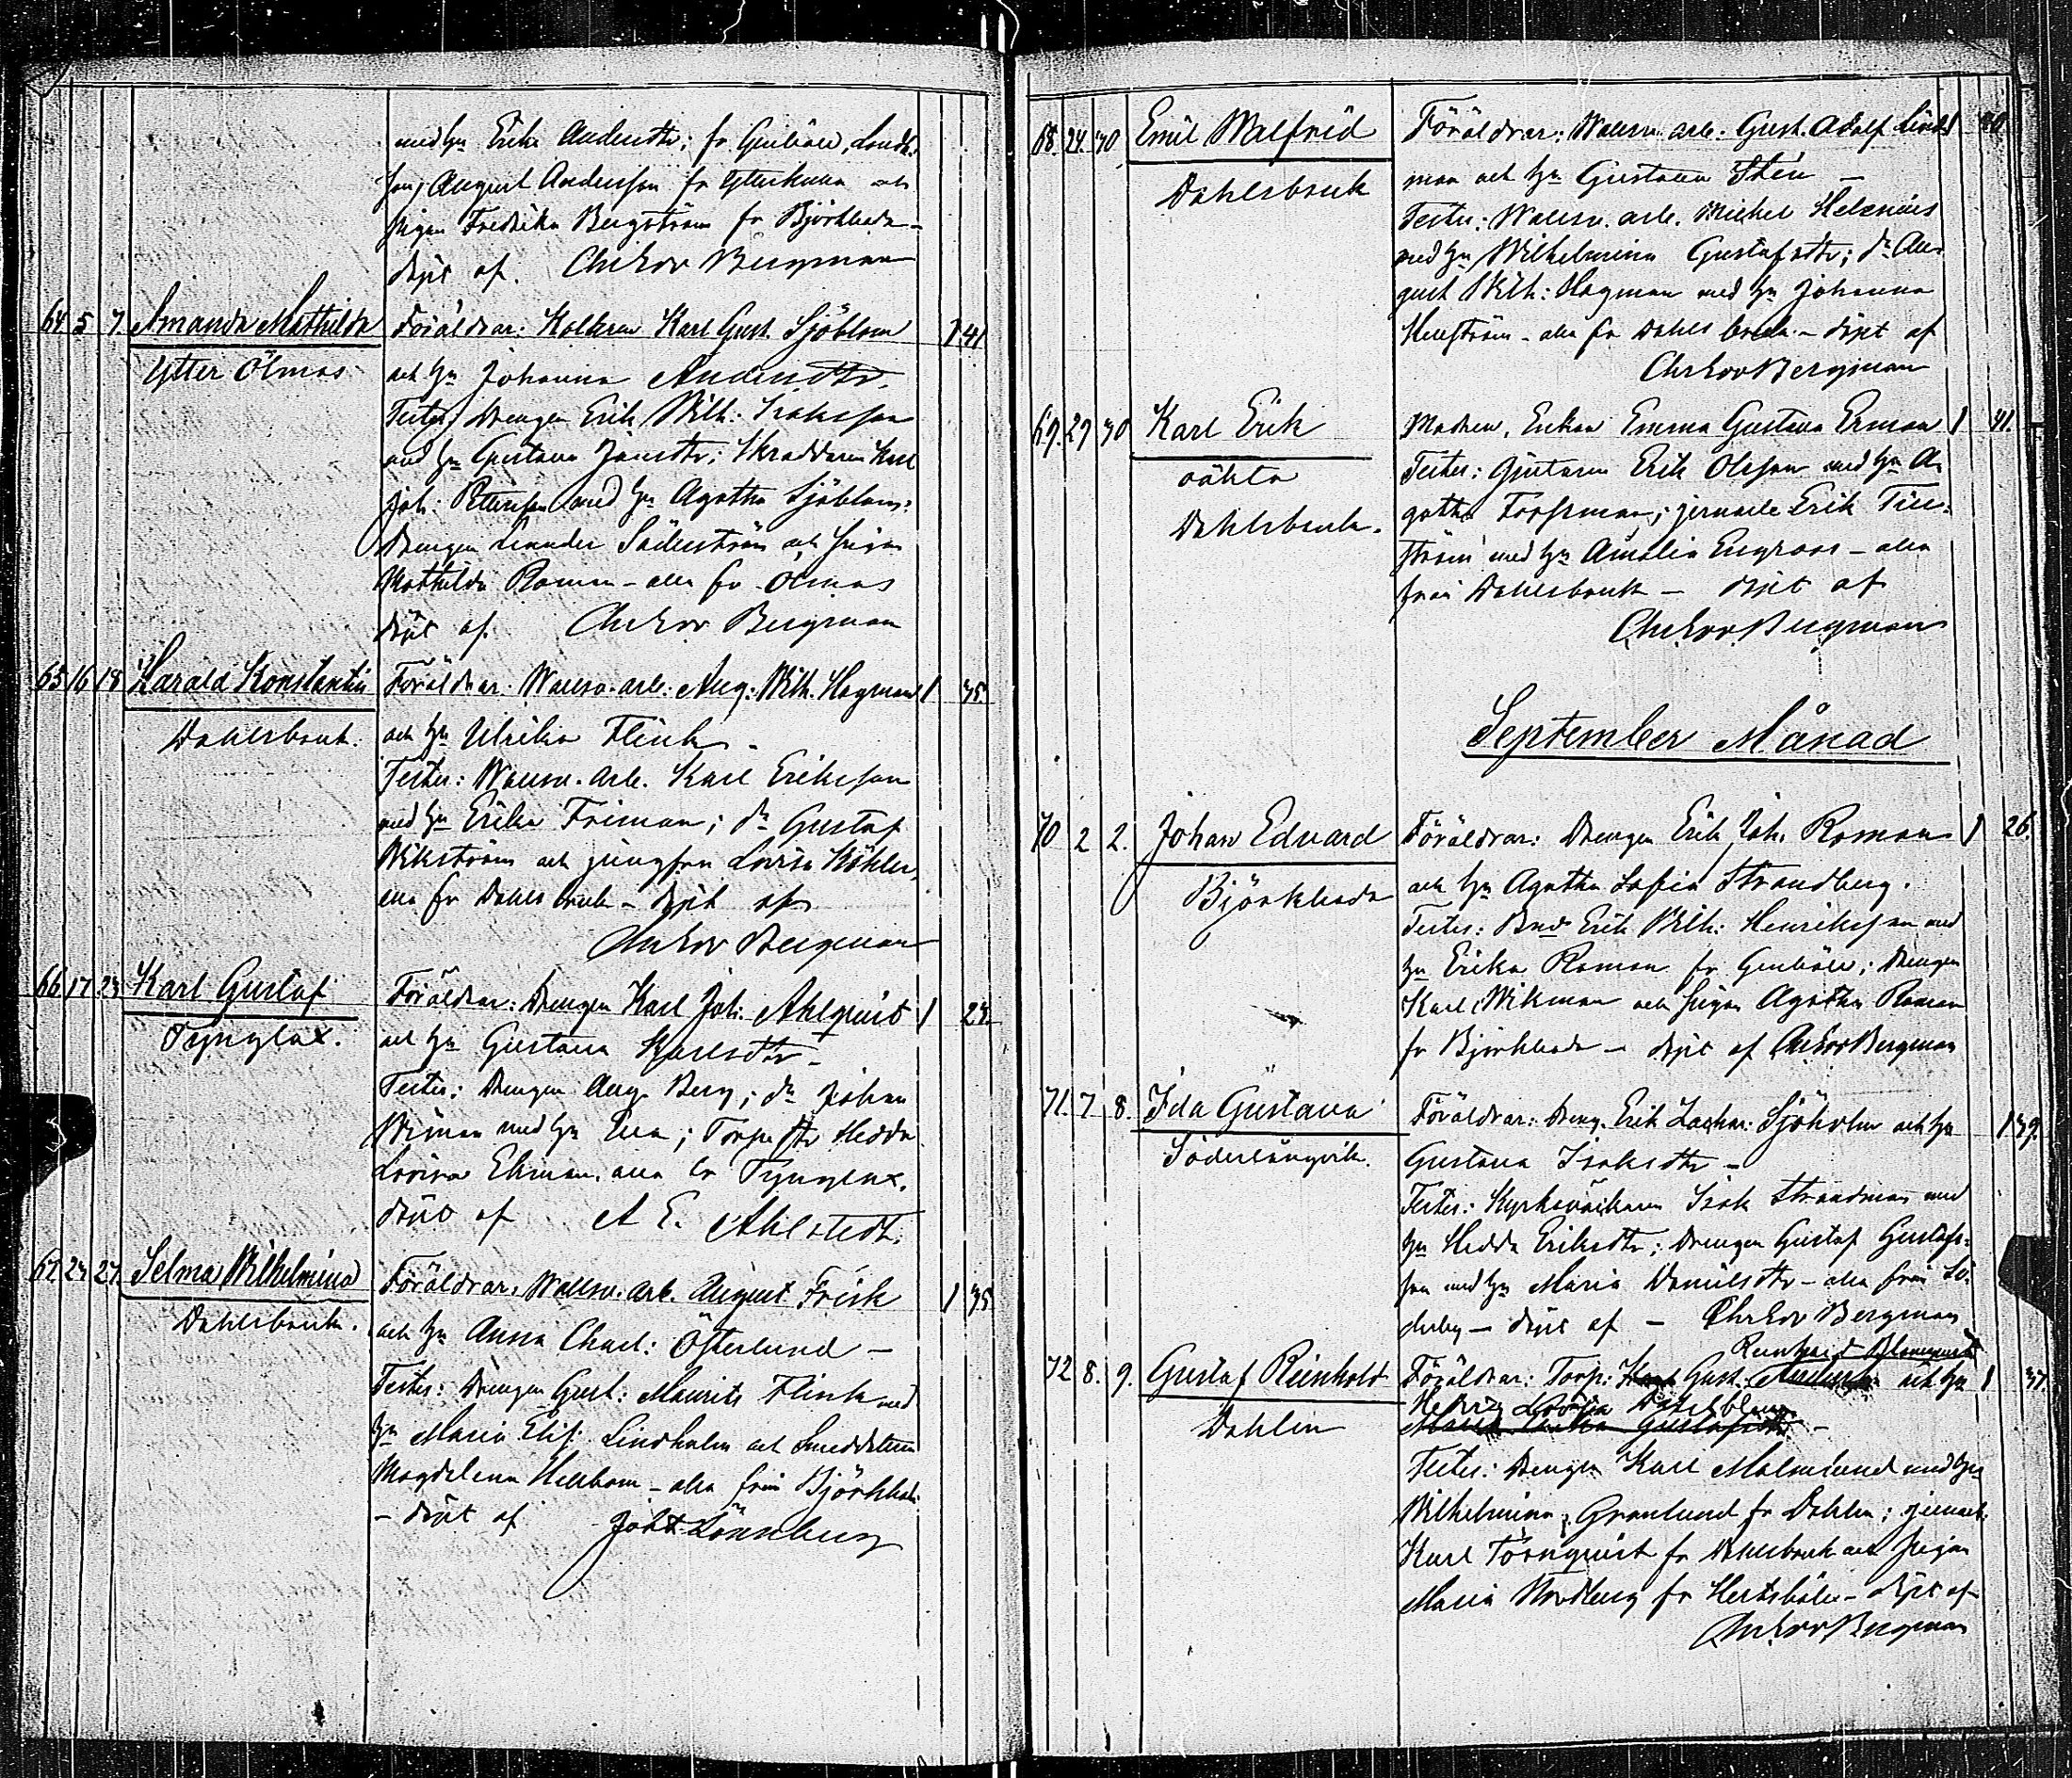 med hu Erika Andersdtr; fr Genböle, Landb.
son August Andersson fr Ytterkulla och
pigan Fredrika Bergström fr Björkboda -
döpt af. Chr Edv Bergman
64 5 7 Amanda Mathilda Föräldrar: Kolkaren Karl Gust. Sjöblom 1 41
Ytter Ölmos och hu Johanna Andersdtr.
Testes: Drengen Erik Wilh: Isaksson
med hu Gustava Jansdtr; Skräddaren Karl
Joh: Pettersson med hu Agatha Sjöblom;
Drengen Leander Söderström och pigan
Mathilda Roman - alla fr Ölmos
döpt af. Chr Edv Bergman
65 16 18 Harald Konstantin Föräldrar: Wallsv. arb: Aug: Wilh. Hagman 1 35.
Dahlsbruk. och hu Ulrika Flink -
Testes: Wallsv. arb. Karl Eriksson
med hu Erika Friman; do Gustaf
Wikström och jungfru Lovisa Köhler,
alla fr Dahlsbruk - döpt af
Chr Edv Bergman
66 17 23 Karl Gustaf Föräldrar: Drengen Karl Joh: Ahlqvist 1 24.
Tynglax. och hu Gustava Karlsdtr -
Testes: Drengen Aug. Berg; do Johan
Wiman med hu Eva; Torpardtr Hedda
Lovisa Ekman. alla fr Tynglax.
döpt af A E. Ahlstedt.
67 24 27 Selma Wilhelmina Föräldrar: Wallsv. arb. August Frisk 1 35
Dahlsbruk. och hu Anna Charl: Österlund -
Testes: Drengen Gust: Maurits Flink med
hu Maria Elis: Lindholm och Smeddottern
Magdalena Hellbom - alla från Björkboda
- döpt af Joh Lönnberg
68. 24. 30 Emil Walfrid Föräldrar: Wallsv. arb: Gust. Adolf Lind- 1
Dahlsbruk man och hu Gustava Sten -
Testes: Wallsv. arb. Mickel Helenius
med hu Wilhelmina Gustafsdtr; do Au-
gust Wilh: Hagman med hu Johanna
- alla fr Dahlsbruk - döpt af
Chr Edv Bergman
69. 29 30 Karl Erik Modren, Enkan Emma Gustava Erman 1 41.
oäkta Testes: Gjutaren Erik Olsson med hu A-
Dahlsbruk. gatha Forssman; jernarb Erik Till-
ström med hu Amalia Engroos - alla
från Dahlsbruk - döpt af
Chr Edv Bergman
September Månad
70 2 2. Johan Edvard Föräldrar: Drengen Erik Joh. Roman 1 26.
Björkboda och hu Agatha Sofia Strandberg.
Testes: Bnd Erik Wilh: Henriksson med
hu Erika Roman fr Genböle; Drengen
Karl Wikman och Pigan Agatha Roman
fr Björkboda - döpt af Chr Edv Bergman
71. 7. 8. Ida Gustava Föräldrar: Dreng. Erik Zachar: Sjöholm och hu 1 39.
Söderlångvik. Gustava Isaksdtr -
Testes: Kyrkoväktaren Isak Strandman med
hu Hedda Eriksdtr; Drengen Gustaf Gustafs-
son med hu Maria Danielsdtr - alla från Sö-
derby - döpt af - Chr Edv Bergman
Reinhold Blomqvist
72 8. 9. Gustaf Reinhold Föräldrar: Torp: Karl Gust. Andersson och hu 1 37.
Hedvig Lovisa Dahlblom
Dahlen Maria Gustafsdtr -
Testes: Drengen Karl Malmlund med hu
Wilhelmina Granlund fr Dahlen; jernarb.
Karl Törnqvist fr Dahlsbruk och Pigan
Maria Nordberg fr Hertsböle - döpt af
Chr Edv Bergman